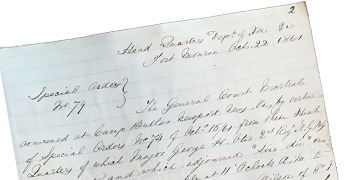 2
Head Quarters Dept of Va &c
Fort Monroe Oct. 22 1861
Special Orders
No 79
The General Court Martial
convened at Camp Butler Newport News, Va, by virtue
of Special Orders No 74 of Oct. 15, 61 from these Head
Quarters of which Major George H. Otis 2d Regt N.Y.
and which adjourned "Sine die"
at 11 O'clock A.M. to
of